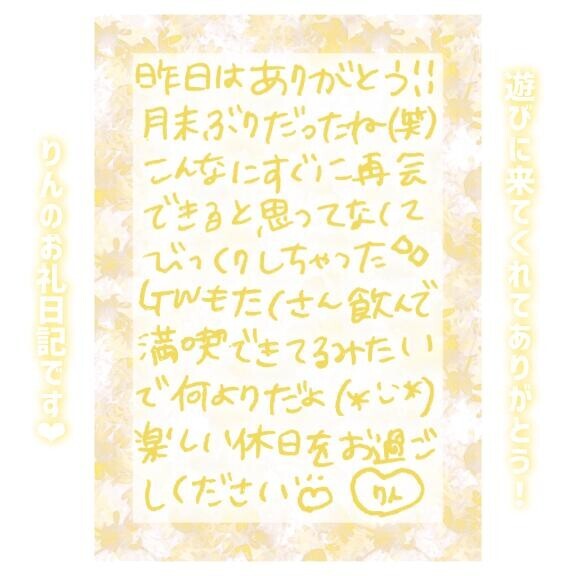 遊びに来てくれてありがとう!
昨日はありがとう!!
月末ぶりだったね(笑)
こんなにすぐに再会
できると思ってなくて
びっくりしちゃった
GWもたくさん飲んで
満喫できてるみたい
で何よりだよ(*ˇ◡ˇ*)
楽しい休日をお過ごし
しください
りん
りんのお礼日記です❤